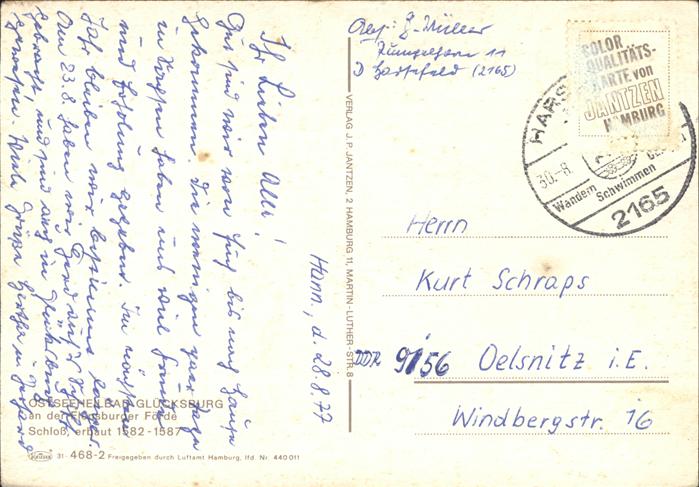 Hann, d. 28.8.77
Ihr Lieben Alle!
Gut sind wir von hug bis nach Hause
gekommen. Die wenigen paar Tage
in Siezen haben uns viel Freude
und Erholung gegeben. Im nächsten
Jahr bleiben wir bestimmt länger
Am 23.8. haben wir Gerd auf's Schiff
gebracht, und sind auch in Glücksburg
gewesen. Viele Grüße
OSTSEEHEILBAD GLÜCKSBURG
an der Flensburger Förde
Schloß, erbaut 1582-1587
31- 468-2 Freigegeben durch Luftamt Hamburg, lfd. Nr. 440011
VERLAG J. P. JANTZEN, 2 HAMBURG 11, MARTIN-LUTHER-STR. 8
Abs.: Müller
11
D Harsefeld (2165)
COLOR
QUALITÄTS-
KARTE von
JANTZEN
HAMBURG
HARS
30.-8.
Wandern
Schwimmen
2165
Herrn
Kurt Schraps
DDR 9156 Oelsnitz i.E.
Windbergstr. 16